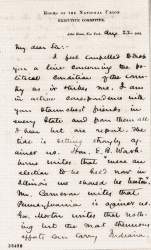 Rooms of the National Union
Executive Committee,
Astor House, New York, Aug 22. 1864.
My dear Sir:—
I feel compelled to drop
you a line concerning the po-
litical condition of the coun-
try as it strikes me. I am
in active correspondence with
your staunchest friends in
every State and from them all
I hear but one report. The
tide is setting strongly
against us. Hon. E. B. Wash-
burne writes that "were an
election to be held now in
Illinois we should be beaten".
Mr. Cameron writes that
Pennsylvania is against us.
Gov. Morton writes that noth-
ing but the most strenuous
efforts can carry Indiana.